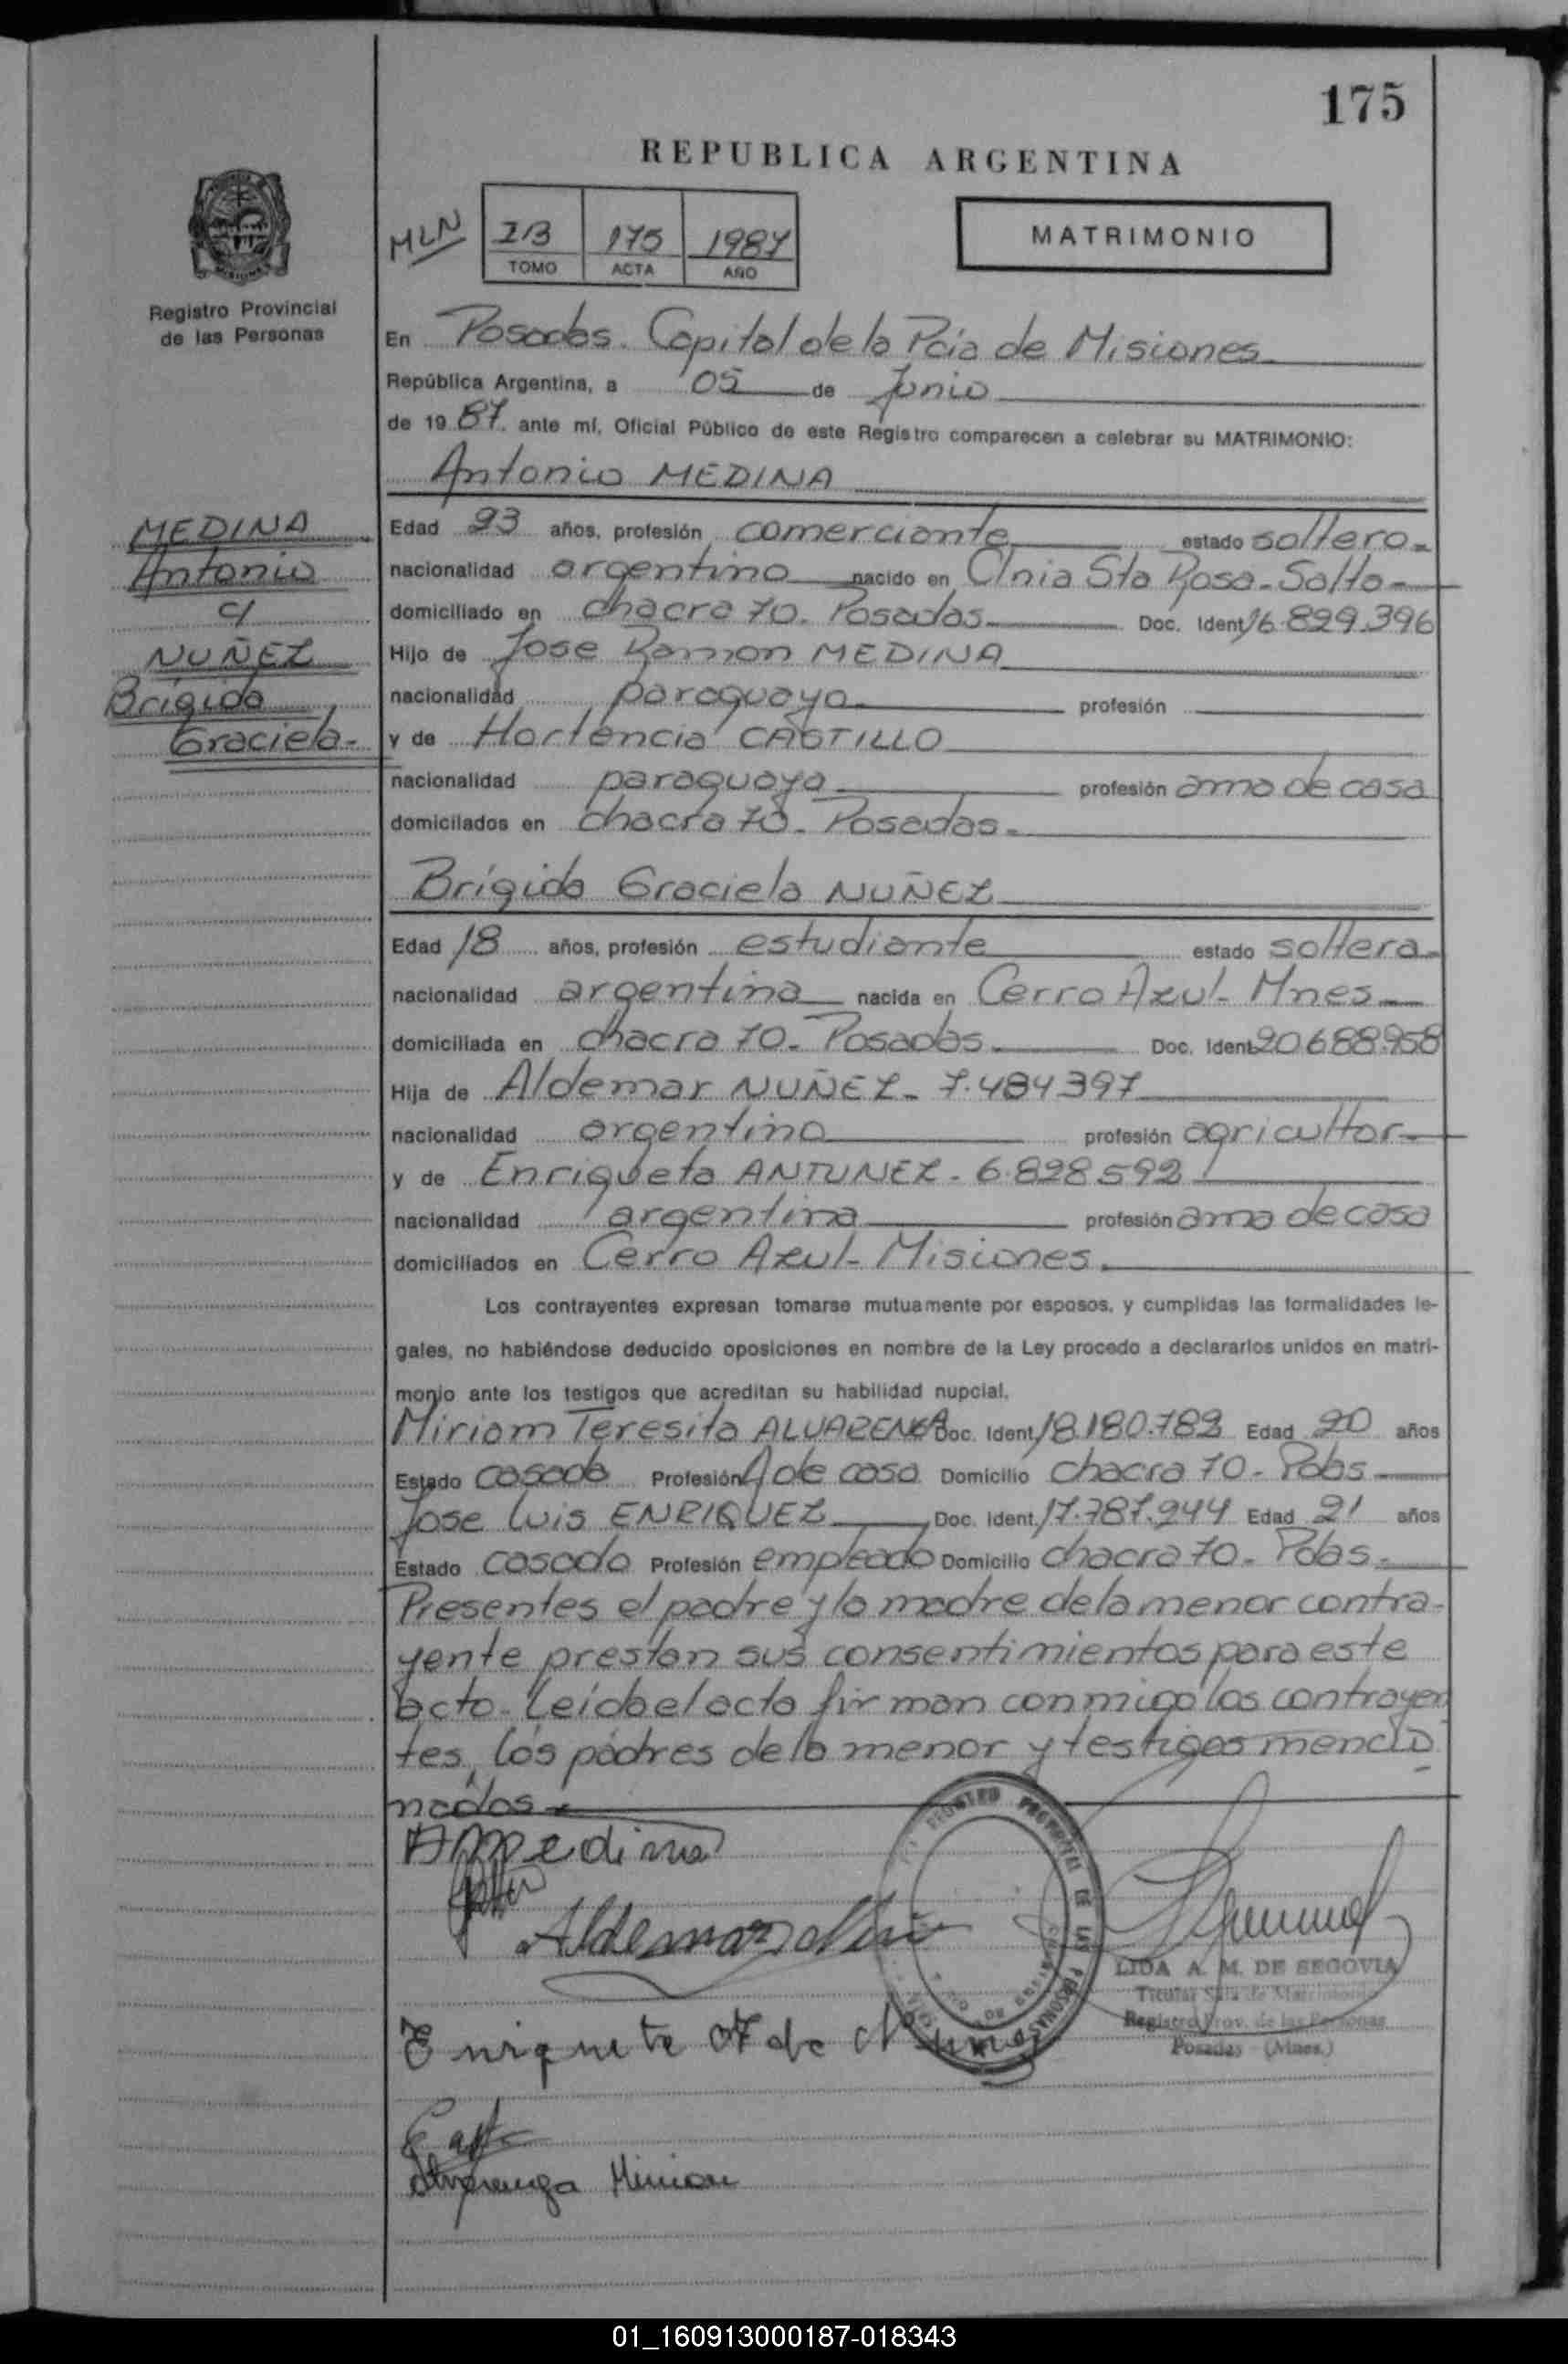 175
REPUBLICA ARGENTINA
MLN
2B 175 1987
TOMO ACTA AÑO
MATRIMONIO
Registro Provincial
de las Personas
En Posadas. Capital de la Pcia de Misiones
República Argentina, a 05 de Junio
de 1987. ante mí, Oficial Público de este Registro comparecen a celebrar su MATRIMONIO:
Antonio MEDINA
MEDINA
Antonio
c/
NUÑEZ
Brígida
Graciela-
Edad 23 años, profesión comerciante estado soltero-
nacionalidad argentino nacido en Clnia Sta Rosa-Salto-
domiciliado en chacra 70. Posadas Doc. Ident. 16.829.396
Hijo de Jose Ramon MEDINA
nacionalidad paraguaya profesión
y de Hortencia CASTILLO
nacionalidad paraguaya profesión ama de casa
domicilados en chacra 70. Posadas-
Brígida Graciela NUÑEZ
Edad 18 años, profesión estudiante estado soltera-
nacionalidad argentina nacida en Cerro Azul- Mnes
domiciliada en chacra 70. Posadas Doc. Ident. 20.688.958
Hija de Aldemar NUÑEZ- 7.484397
nacionalidad argentino profesión agricultor
y de Enriqueta ANTUNEZ- 6.828592
nacionalidad argentina profesión ama de casa
domiciliados en Cerro Azul- Misiones
Los contrayentes expresan tomarse mutuamente por esposos, y cumplidas las formalidades le-
gales, no habiéndose deducido oposiciones en nombre de la Ley procedo a declararlos unidos en matri-
monio ante los testigos que acreditan su habilidad nupcial.
Miriam Teresita ALVARENGA Doc. Ident. 18.180.782 Edad 20 años
Estado casada Profesión A de casa Domicilio chacra 70- Pdas
Jose Luis ENRIQUEZ Doc. Ident. 17.787.244 Edad 21 años
Estado casado Profesión empleado Domicilio chacra 70- Pdas.
Presentes el padre y la madre de la menor contra-
yente prestan sus consentimientos para este
acto. Leída el acta firman conmigo los contrayen
tes, los padres de la menor y testigos mencio
nados
AMedina
Aldemar Nuñ
LIDA A. M. DE SEGOVIA
Titular Sala de Matrimonio
Registro Prov. de las Personas
Posadas - (Mnes.)
Enriqueta de
Alvarenga Miriam
01_160913000187-018343